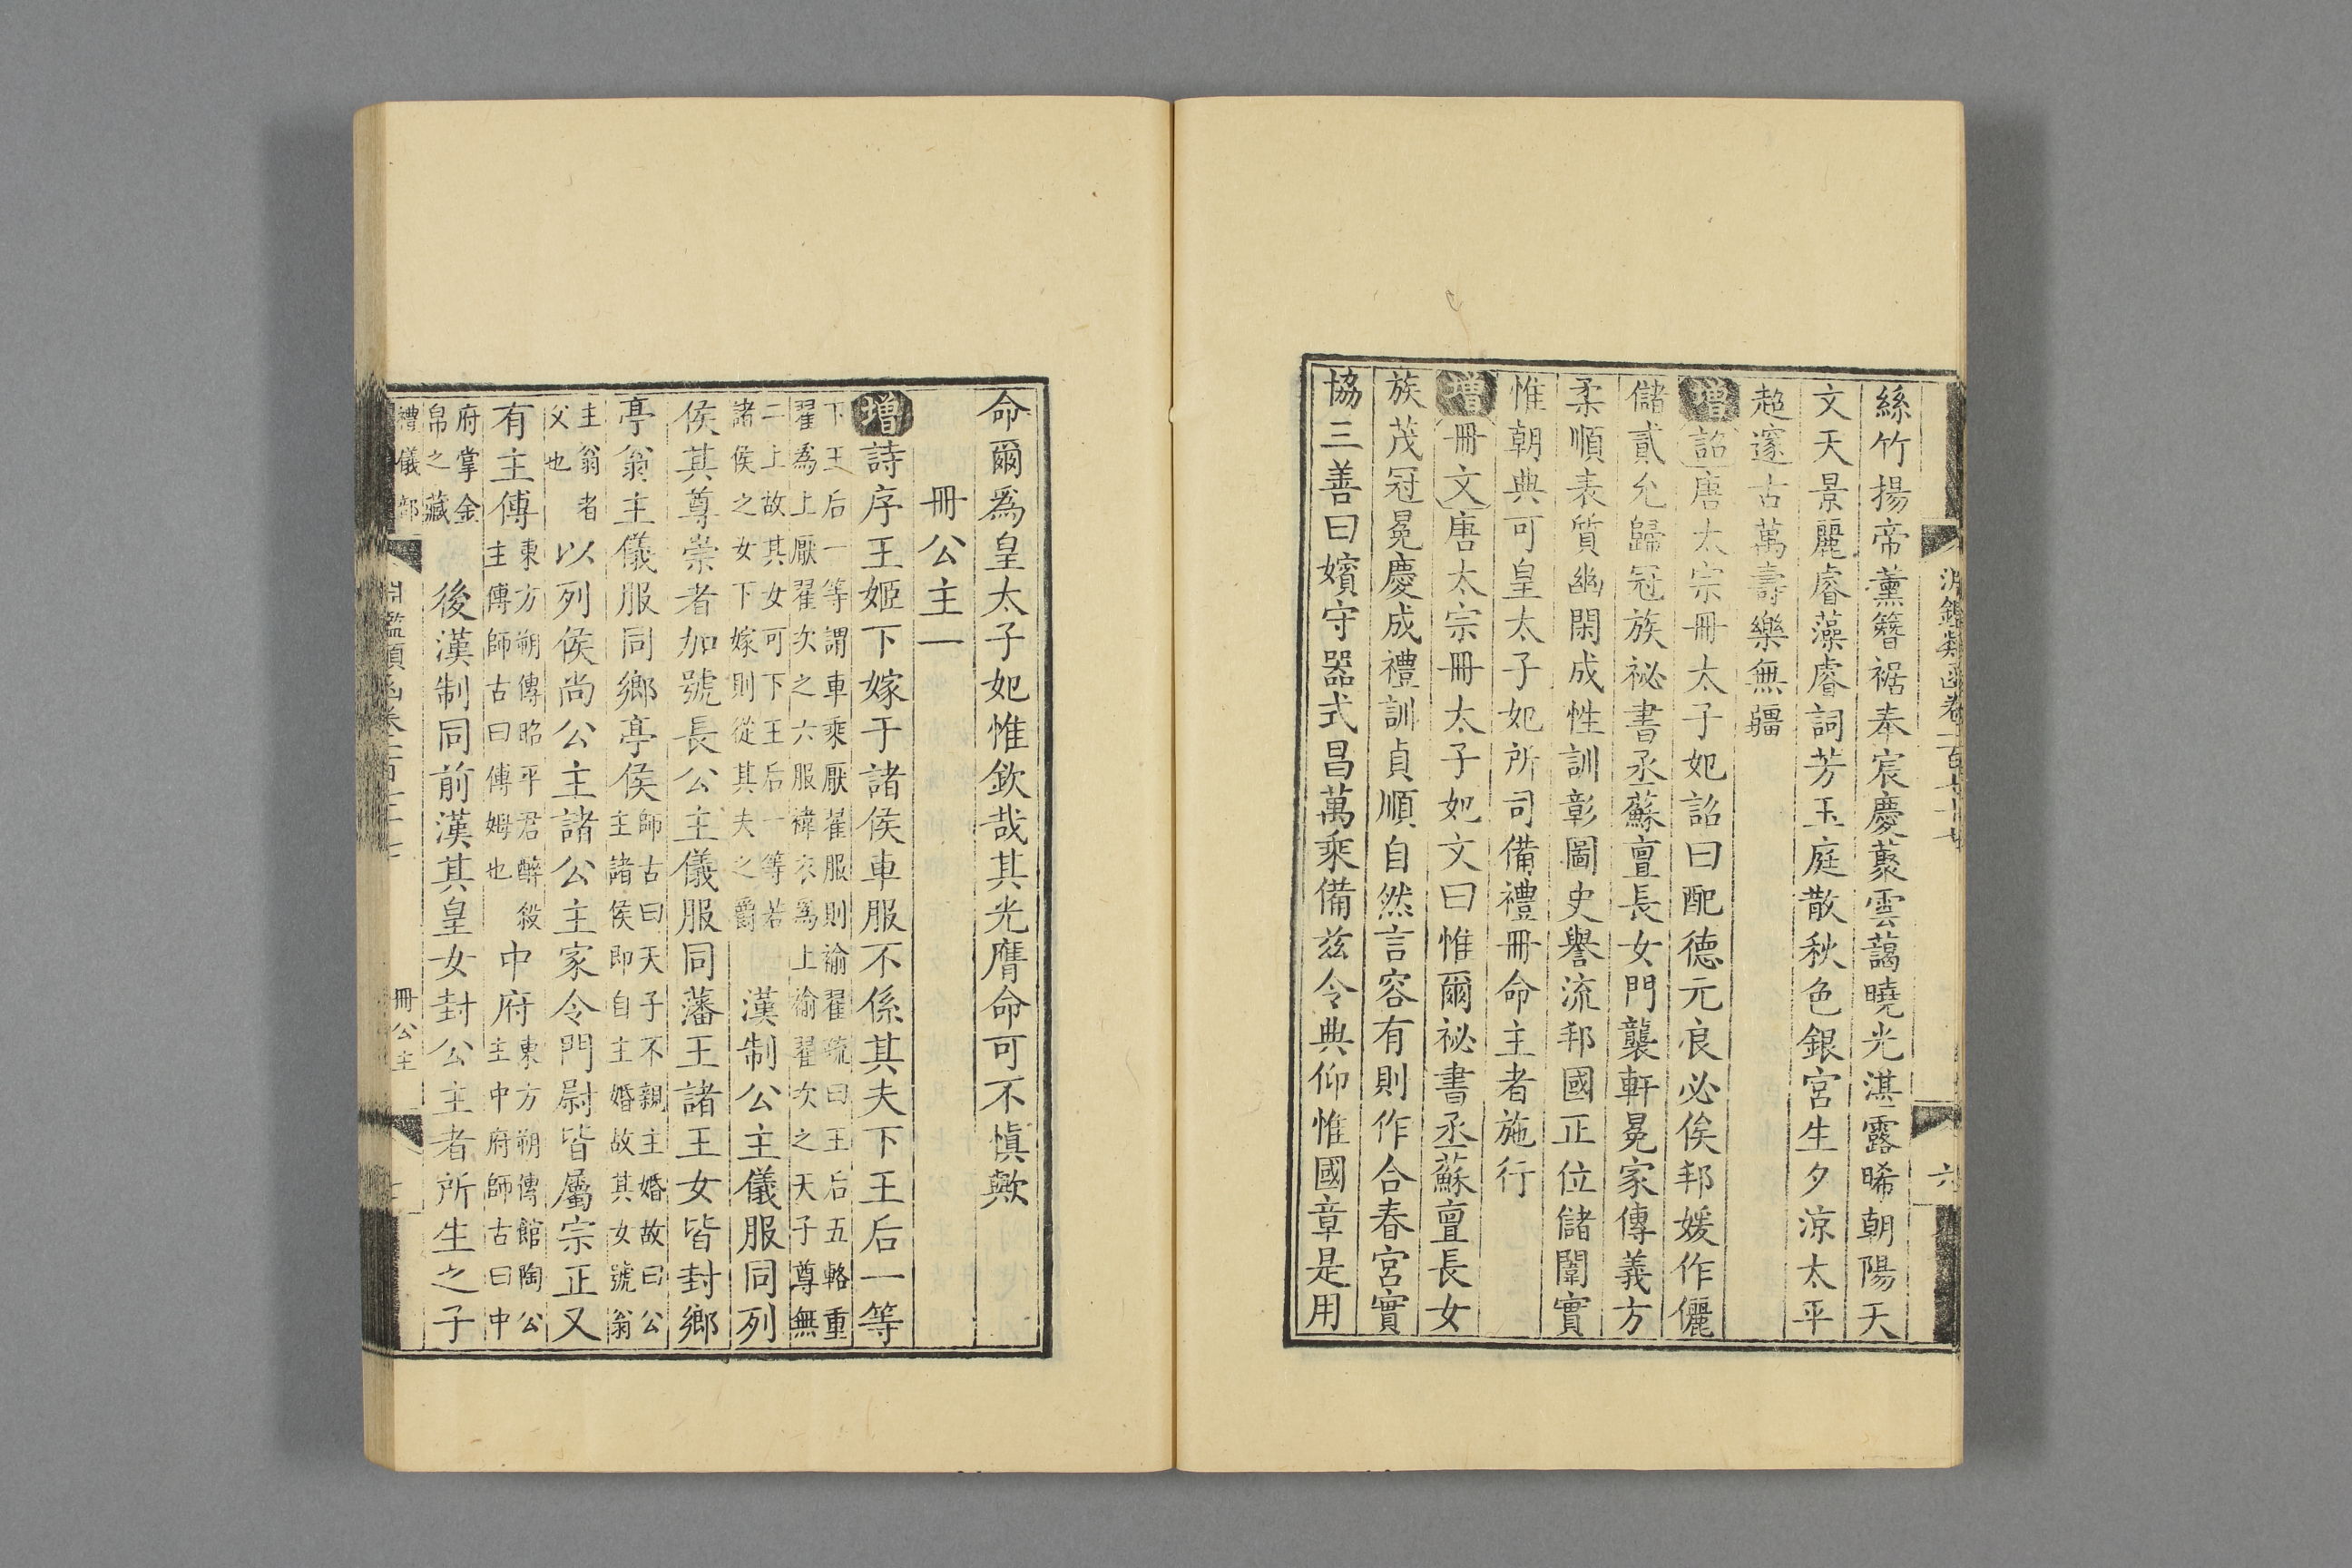 絲竹揚帝薰簪裾奉宸慶藂雲藹曉光湛露晞朝陽天
文天景麗睿藻睿詞芳玉庭散秋色銀宮生夕涼太平
超邃古萬壽樂無疆
增詔唐太宗冊太子妃詔曰配德元良必俟邦媛作儷
儲貳允歸冠族祕書丞蘇亶長女門襲軒冕家傳義方
柔順表質幽閑成性訓彰圖史譽流邦國正位儲闈實
惟朝典可皇太子妃所司備禮冊命主者施行
增冊文唐太宗冊太子妃文曰惟爾祕書丞蘇亶長女
族茂冠冕慶成禮訓貞順自然言容有則作合春宮實
協三善曰嬪守器式昌萬乘備茲令典仰惟國章是用
六
命爾為皇太子妃惟欽哉其光膺命可不慎歟
冊公主一
增詩序王姬下嫁于諸侯車服不係其夫下王后一等
下王后一等謂車乘厭翟服則褕翟疏曰王后五輅重
翟為上厭翟次之六服褘衣為上褕翟次之天子尊無
二上故其女可下王后一等若
諸侯之女下嫁則從其夫之爵
漢制公主儀服同列
侯其尊崇者加號長公主儀服同藩王諸王女皆封鄉
亭翁主儀服同鄉亭侯
師古曰天子不親主婚故曰公
主諸侯即自主婚故其女號翁
主翁者
父也
以列侯尚公主諸公主家令門尉皆屬宗正又
有主傅
東方朔傳昭平君醉殺
主傅師古曰傅姆也
中府
東方朔傳館陶公
主中府師古曰中
府掌金
帛之藏
後漢制同前漢其皇女封公主者所生之子
冊公主